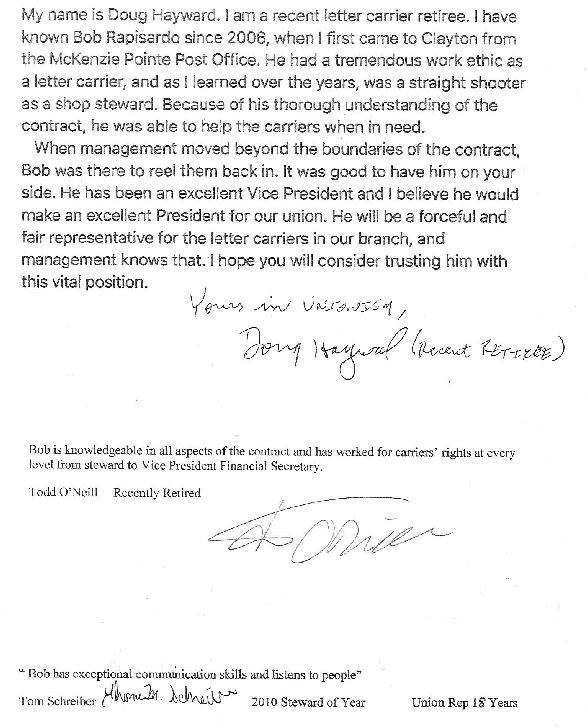 My name is Doug Hayward. I am a recent letter carrier retiree. I have
known Bob Rapisardo since 2006, when I first came to Clayton from
the McKenzie Pointe Post Office. He had a tremendous work ethic as
a letter carrier, and as I learned over the years, was a straight shooter
as a shop steward. Because of his thorough understanding of the
contract, he was able to help the carriers when in need.
When management moved beyond the boundaries of the contract,
Bob was there to reel them back in. It was good to have him on your
side. He has been an excellent Vice President and I believe he would
make an excellent President for our union. He will be a forceful and
fair representative for the letter carriers in our branch, and
management knows that. I hope you will consider trusting him with
this vital position.
Yours in unionism,
Doug Hayward (Recent RETIREE)
Bob is knowledgeable in all aspects of the contract and has worked for carriers' rights at every
level from steward to Vice President Financial Secretary.
Todd O'Neill Recently Retired
" Bob has exceptional communication skills and listens to people"
Tom Schreiber Thomas M. Schreiber 2010 Steward of Year Union Rep 18 Years